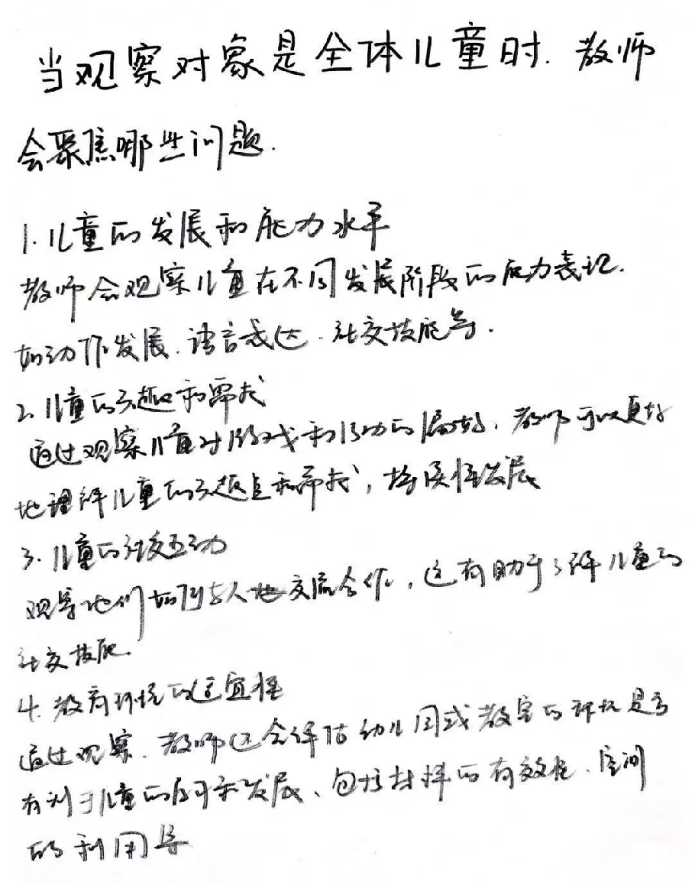 当观察对象是全体儿童时. 教师
会聚焦哪些问题.
1. 儿童的发展和能力水平
教师会观察儿童在不同发展阶段的能力表现.
如动作发展. 语言表达. 社交技能等.
2. 儿童的兴趣和需求
通过观察儿童对游戏和活动的偏好, 教师可以更好
地理解儿童的兴趣点和需求, 发展
3. 儿童的社交互动
观察他们如何与人交流合作, 这有助于了解儿童的
社交技能.
4. 教育环境的适宜性
通过观察. 教师还会评估幼儿园或教室的环境是否
有利于儿童的学习和发展、包括材料的有效性. 空间
的利用等